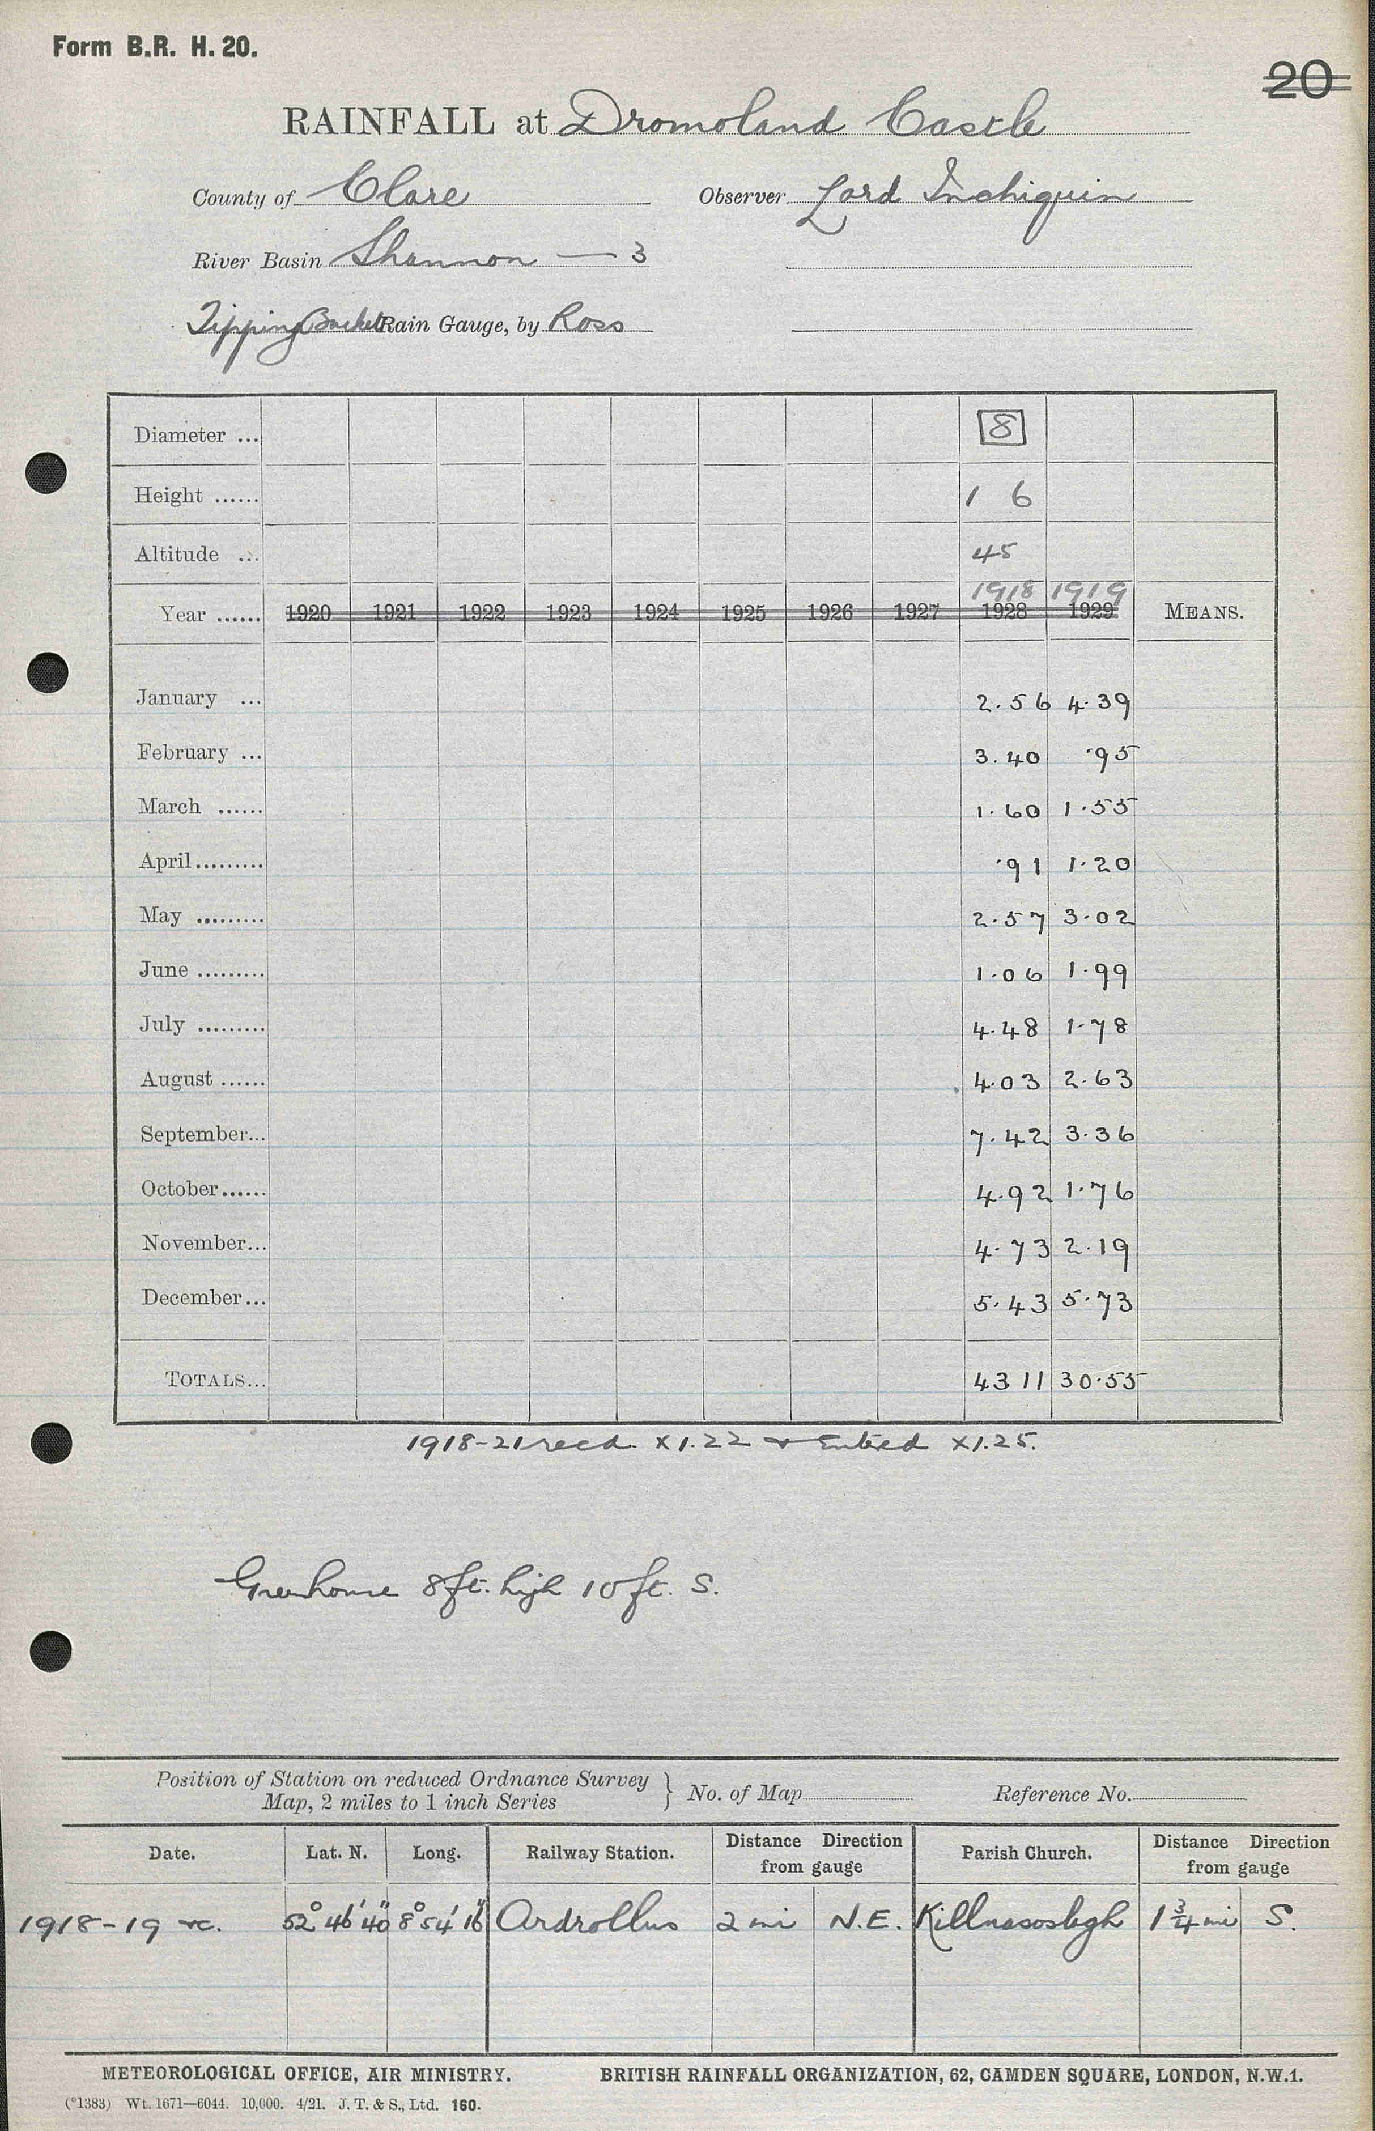 Form B.R. H. 20.
20
RAINFALL at Dromoland Castle
County of Clare Observer Lord Inchiquin
River Basin Shannon — 3
Tipping Bucket Rain Gauge, by Ross
Diameter ... 8
Height ...... 1 6
Altitude ... 45
1918 1919
Year ...... 1920 1921 1922 1923 1924 1925 1926 1927 1928 1929 MEANS.
January ... 2.56 4.39
February ... 3.40 .95
March ...... 1.60 1.55
April ......... .91 1.20
May ......... 2.57 3.02
June ......... 1.06 1.99
July ......... 4.48 1.78
August ...... 4.03 2.63
September... 7.42 3.36
October...... 4.92 1.76
November... 4.73 2.19
December... 5.43 5.73
TOTALS... 43 11 30.55
1918-21 recd. x1.22 & Entered x1.25.
Greenhouse 8ft. high 10ft. S.
Position of Station on reduced Ordnance Survey
Map, 2 miles to 1 inch Series } No. of Map Reference No.
Date. Lat. N. Long. Railway Station. Distance Direction from gauge Parish Church. Distance Direction from gauge
1918-19 rc. 52° 46' 40" 8° 54' 16" Ardrollus 2 mi N.E. Killnasoslagh 1 3/4 mi S.
METEOROLOGICAL OFFICE, AIR MINISTRY. BRITISH RAINFALL ORGANIZATION, 62, CAMDEN SQUARE, LONDON, N.W.1.
(*1383) Wt. 1671—6044. 10,000. 4/21. J. T. & S., Ltd. 160.